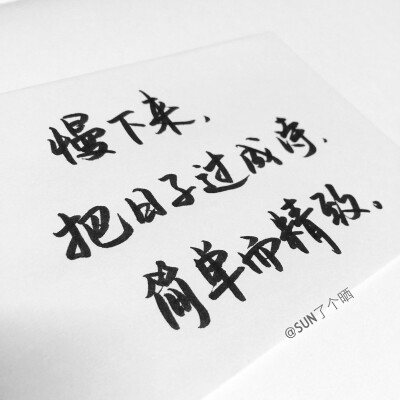 慢下来,
把日子过成诗,
简单而精致、
@SUN了个晒